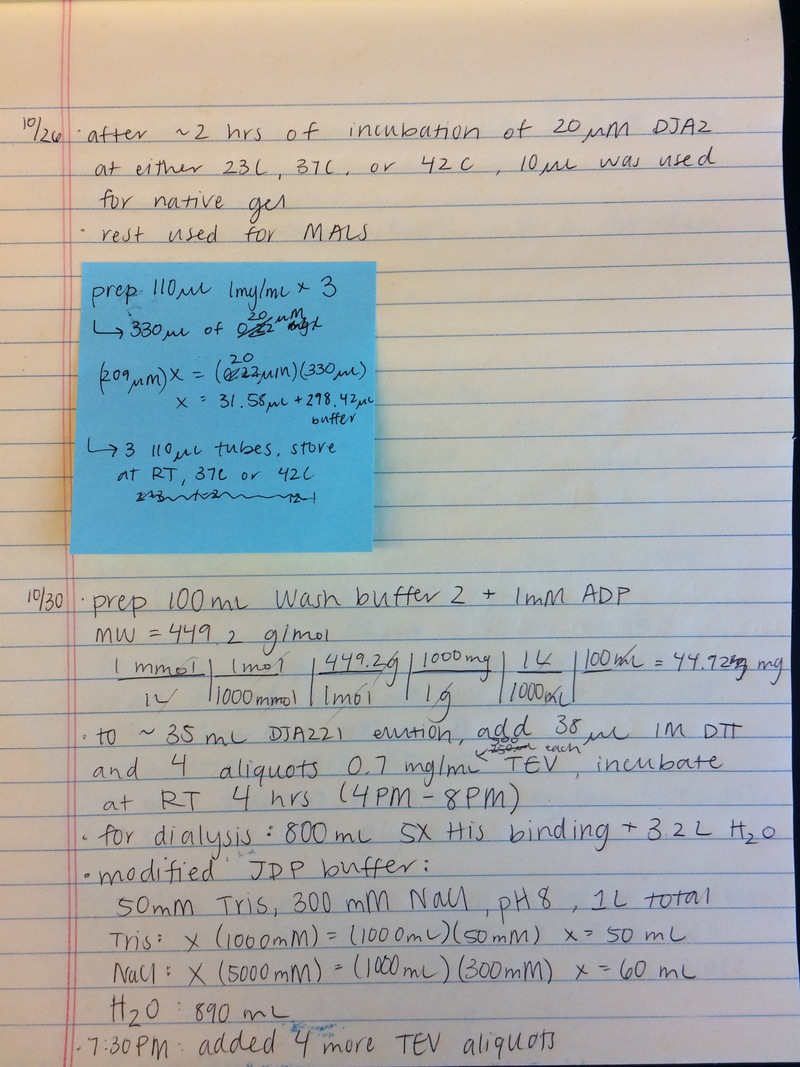 10/26 · after ~2 hrs of incubation of 20 µM DJA2
at either 23C, 37C, or 42C, 10 µL was used
for native gel
· rest used for MALS
prep 110 µL 1mg/mL × 3
20 µM
↳ 330 µL of
20
(209 µM) x = ( µM)(330 µL)
x = 31.58 µL + 298.42 µL
buffer
↳ 3 110 µL tubes, store
at RT, 37C or 42C
10/30 · prep 100 mL Wash buffer 2 + 1mM ADP
MW = 449.2 g/mol
1 mmol | 1 mol | 449.2g | 1000 mg | 1L | 100 mL = 44.92 mg
1L | 1000 mmol | 1 mol | 1g | 1000 mL
· to ~ 35 mL DJA221 elution, add 35 µL 1M DTT
500 each
and 4 aliquots 0.7 mg/mL TEV, incubate
at RT 4 hrs (4PM - 8PM)
· for dialysis: 800 mL 5X His binding + 3.2 L H2O
· modified JDP buffer:
50mM Tris, 300 mM NaCl, pH 8, 1L total
Tris: x (1000mM) = (1000mL)(50mM) x = 50 mL
NaCl: x (5000mM) = (1000mL)(300mM) x = 60 mL
H2O: 890 mL
· 7:30PM: added 4 more TEV aliquots